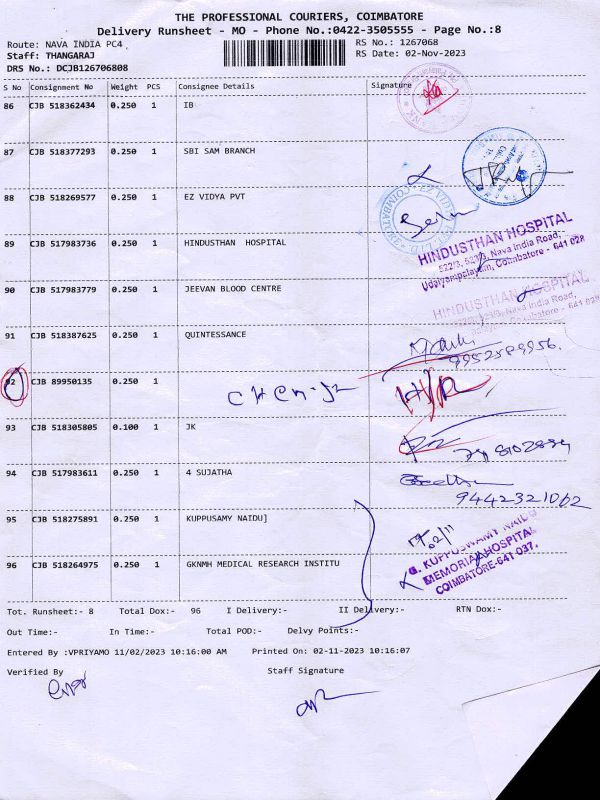 THE PROFESSIONAL COURIERS, COIMBATORE
Delivery Runsheet - MO - Phone No.:0422-3505555 - Page No.:8
Route: NAVA INDIA PC4 RS No.: 1267068
Staff: THANGARAJ RS Date: 02-Nov-2023
DRS No.: DCJB126706808
S No Consignment No Weight PCS Consignee Details Signature
86 CJB 518362434 0.250 1 IB
87 CJB 518377293 0.250 1 SBI SAM BRANCH
88 CJB 518269577 0.250 1 EZ VIDYA PVT
89 CJB 517983736 0.250 1 HINDUSTHAN HOSPITAL
HINDUSTHAN HOSPITAL
522/3, 523/3, Nava India Road,
Udaiyampalayam, Coimbatore - 641 028
90 CJB 517983779 0.250 1 JEEVAN BLOOD CENTRE
HINDUSTHAN HOSPITAL
522/3, 523/3, Nava India Road,
Coimbatore - 641 028
91 CJB 518387625 0.250 1 QUINTESSANCE
9952589956.
92 CJB 89950135 0.250 1
93 CJB 518305805 0.100 1 JK
94 CJB 517983611 0.250 1 4 SUJATHA
9442321062
95 CJB 518275891 0.250 1 KUPPUSAMY NAIDU]
96 CJB 518264975 0.250 1 GKNMH MEDICAL RESEARCH INSTITU
G. KUPPUSWAMY NAIDU
MEMORIAL HOSPITAL
COIMBATORE-641 037.
Tot. Runsheet:- 8 Total Dox:- 96 I Delivery:- II Delivery:- RTN Dox:-
Out Time:- In Time:- Total POD:- Delvy Points:-
Entered By :VPRIYAMO 11/02/2023 10:16:00 AM Printed On: 02-11-2023 10:16:07
Verified By Staff Signature